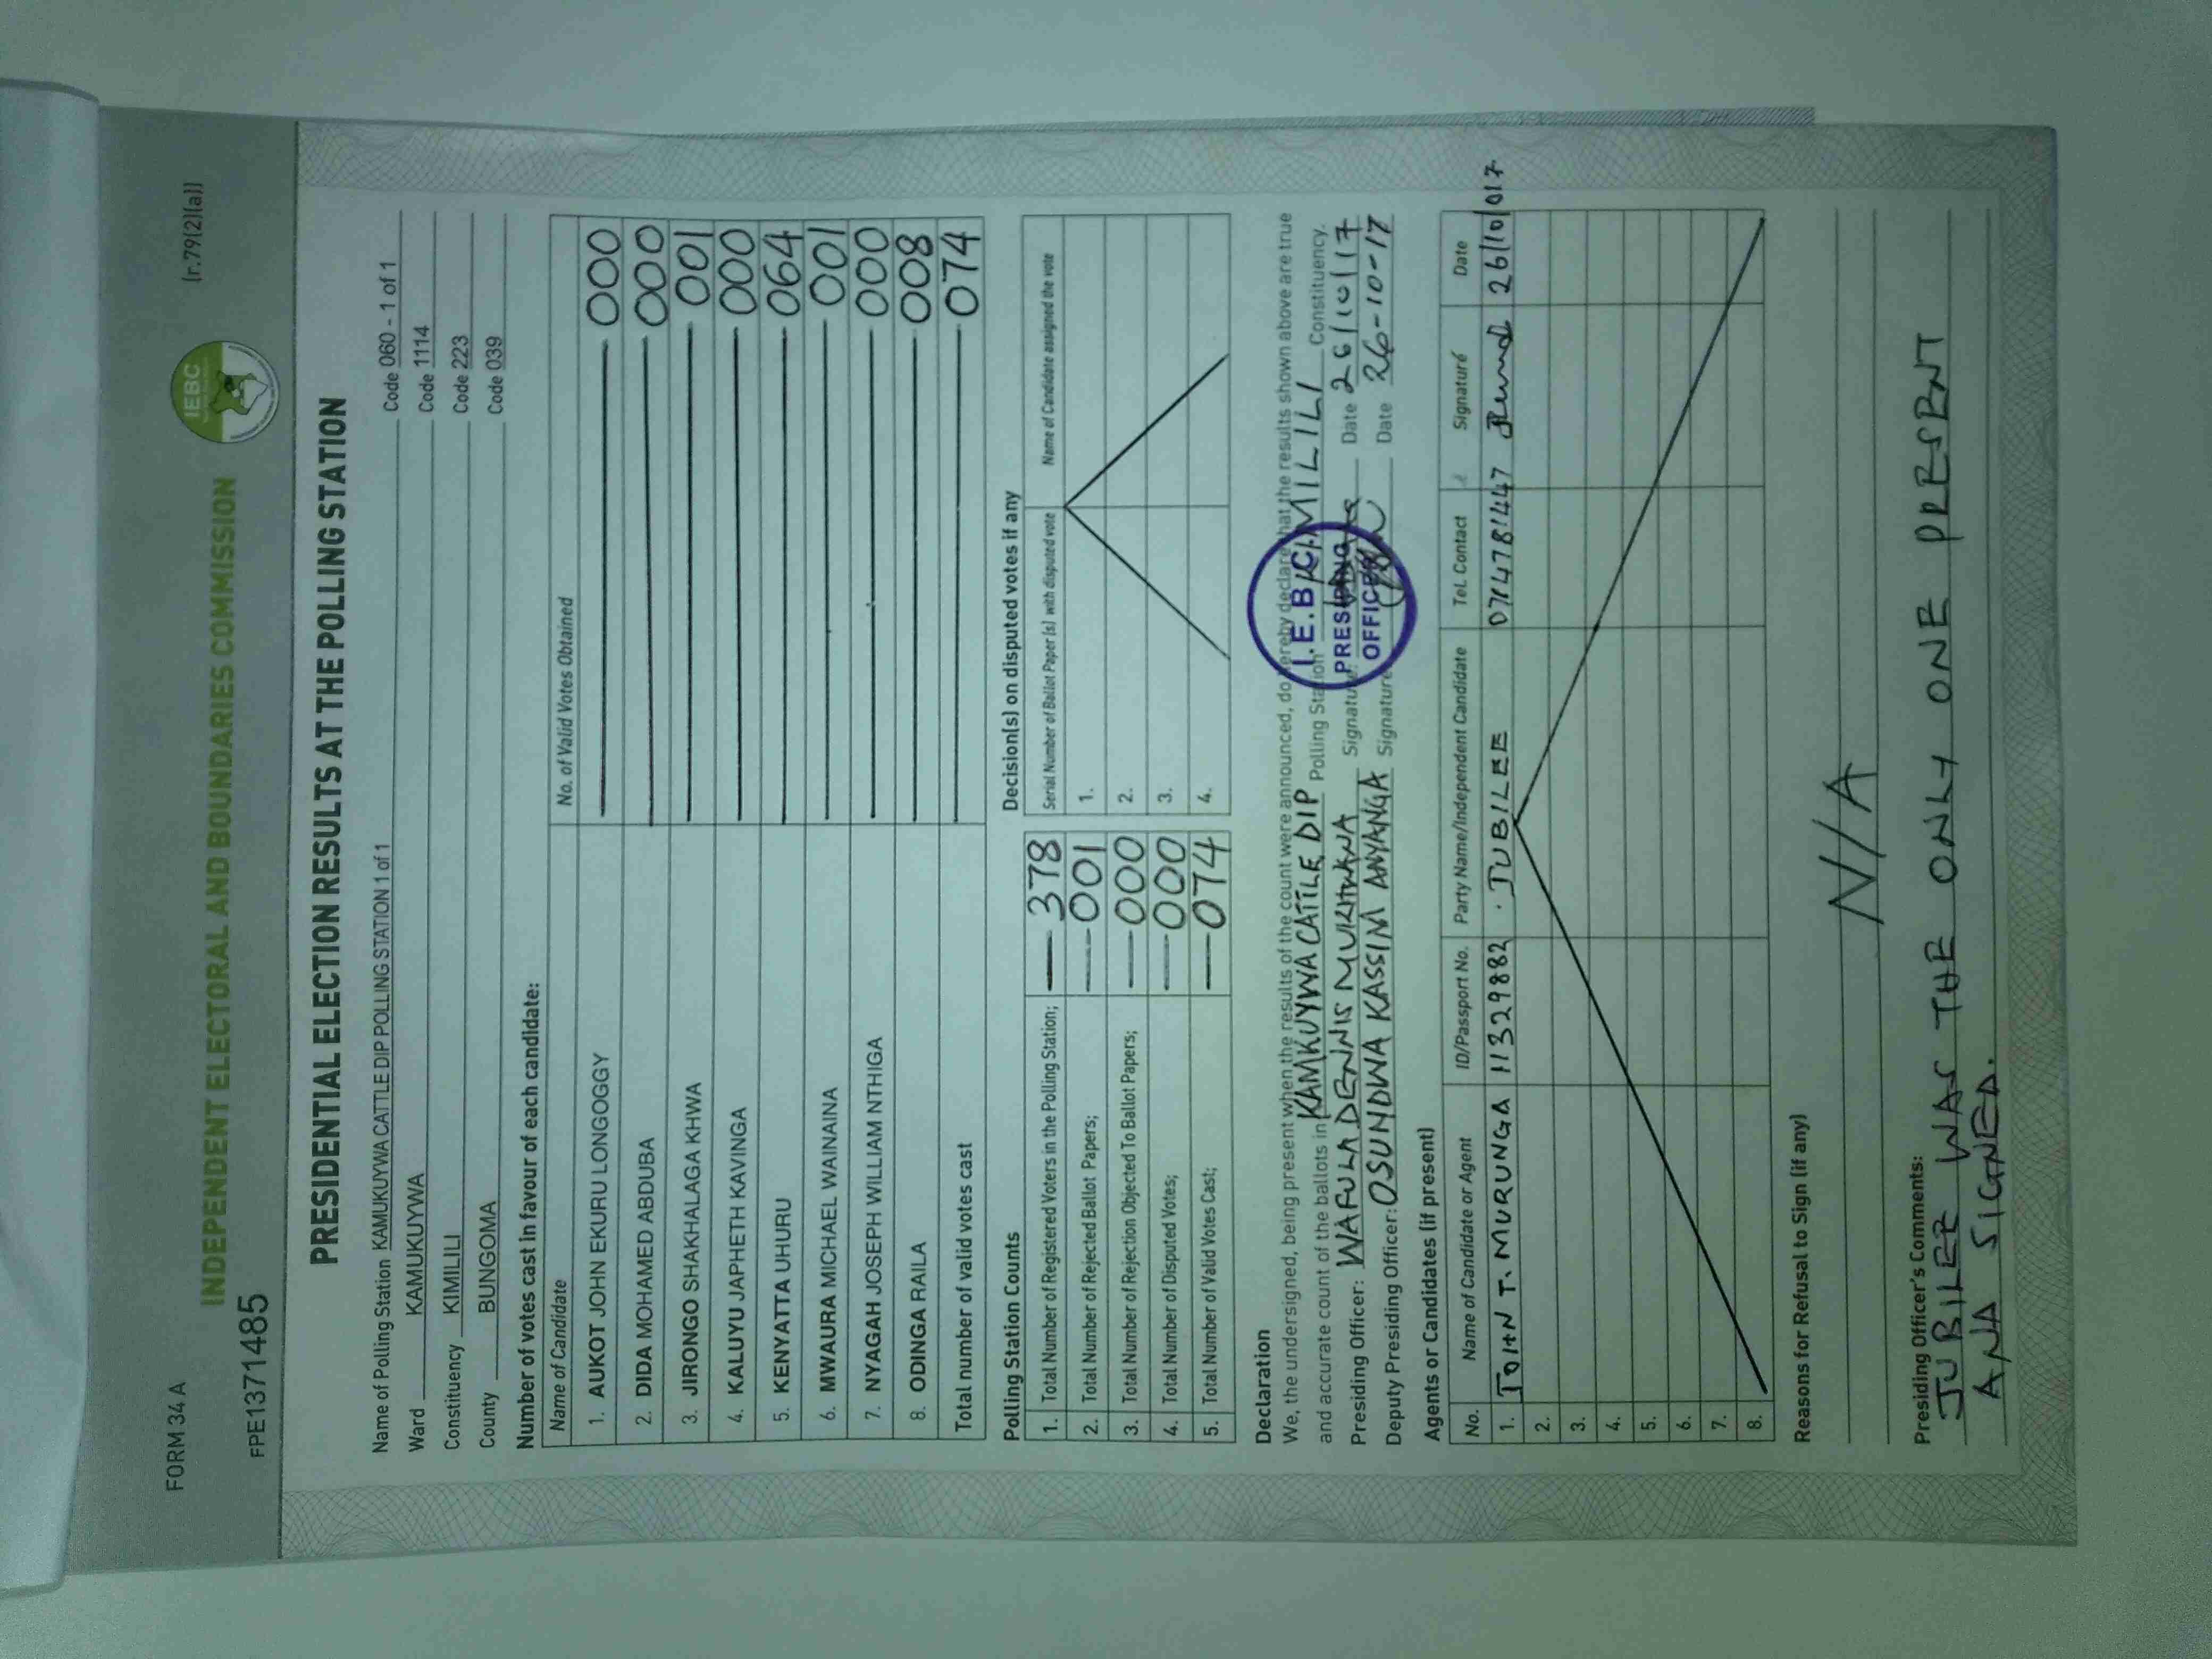 FORM 34 A
(r.79(2)(a))
INDEPENDENT ELECTORAL AND BOUNDARIES COMMISSION
IEBC
FPE1371485
PRESIDENTIAL ELECTION RESULTS AT THE POLLING STATION
Name of Polling Station KAMUKUYWA CATTLE DIP POLLING STATION 1 of 1 Code 060 - 1 of 1
Ward KAMUKUYWA Code 1114
Constituency KIMILILI Code 223
County BUNGOMA Code 039
Number of votes cast in favour of each candidate:
Name of Candidate No. of Valid Votes Obtained
1. AUKOT JOHN EKURU LONGOGGY 000
2. DIDA MOHAMED ABDUBA 000
3. JIRONGO SHAKHALAGA KHWA 001
4. KALUYU JAPHETH KAVINGA 000
5. KENYATTA UHURU 064
6. MWAURA MICHAEL WAINAINA 001
7. NYAGAH JOSEPH WILLIAM NTHIGA 000
8. ODINGA RAILA 008
Total number of valid votes cast 074
Polling Station Counts
1. Total Number of Registered Voters in the Polling Station; 378
2. Total Number of Rejected Ballot Papers; 001
3. Total Number of Rejection Objected To Ballot Papers; 000
4. Total Number of Disputed Votes; 000
5. Total Number of Valid Votes Cast; 074
Decision(s) on disputed votes if any
Serial Number of Ballot Paper (s) with disputed vote Name of Candidate assigned the vote
1.
2.
3.
4.
Declaration
We, the undersigned, being present when the results of the count were announced, do hereby declare that the results shown above are true
and accurate count of the ballots in KAMKUYWA CATTLE DIP Polling Station KIMILILI Constituency.
Presiding Officer: WAFULA DENNIS MUKHWANA Signature: Date 26/10/17
Deputy Presiding Officer: OSUNDWA KASSIM ANYANGA Signature Date 26-10-17
I.E.B.C.
PRESIDING
OFFICER
Agents or Candidates (if present)
No. Name of Candidate or Agent ID/Passport No. Party Name/Independent Candidate Tel. Contact Signature Date
1. JOHN T. MURUNGA 11329882 JUBILEE 0714781447 26/10/017
2.
3.
4.
5.
6.
7.
8.
Reasons for Refusal to Sign (if any)
N/A
Presiding Officer's Comments:
JUBILEE WAS THE ONLY ONE PRESENT
AND SIGNED.